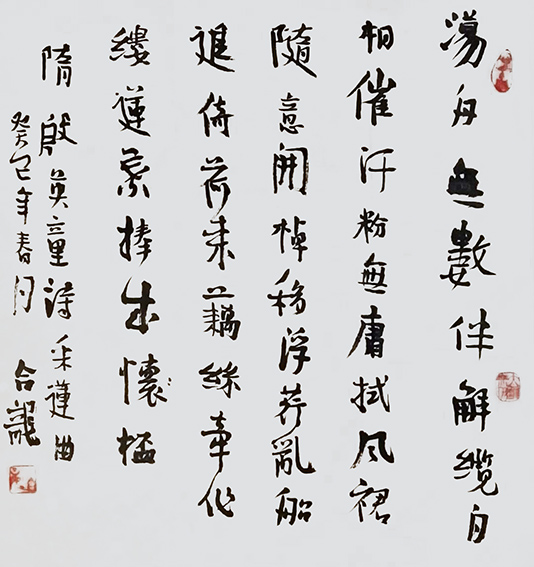 蕩舟無數伴解纜自
相催汗粉無庸拭风裙
隨意開棹移浮荇亂船
進倚荷來藕絲牽作
縷蓮葉捧成懷杯
隋殷英童詩采蓮曲
癸巳年春月合龍